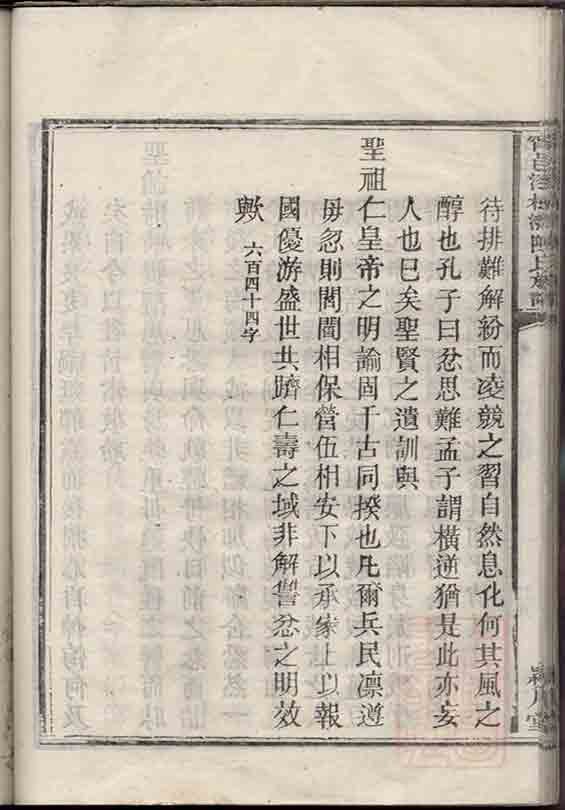 待排難解紛而凌競之習自然息化何其風之
醇也孔子曰忿思難孟子謂橫逆猶是此亦妄
人也巳矣聖賢之遺訓與
聖祖仁皇帝之明諭固千古同揆也凡爾兵民凛遵
毋忽則閭閻相保營伍相安下以承家上以報
國優游盛世共躋仁壽之域非解讐忿之明效
歟 六百四十四字